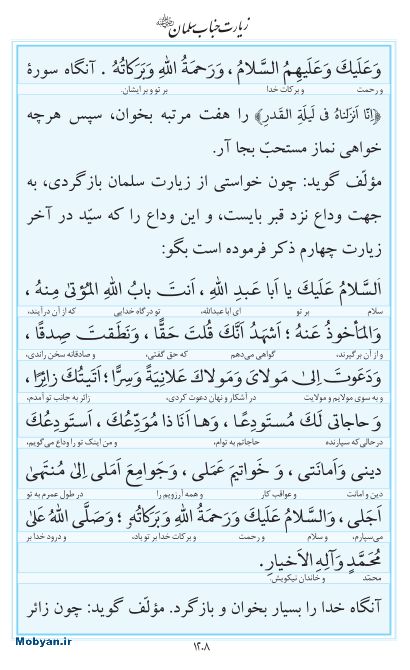 زیارت جناب سلمان
وَعَلَيكَ وَعَلَيهِمُ السَّلامُ، وَرَحمَةُ اللهِ وَبَرَكاتُهُ. آنگاه سورۀ
بر تو و بر ایشان. و رحمت و برکات خدا
﴿اِنّا اَنزَلناهُ فی لَیلَةِ القَدرِ﴾ را هفت مرتبه بخوان، سپس هرچه
خواهی نماز مستحبّ بجا آر.
مؤلّف گوید: چون خواستی از زیارت سلمان بازگردی، به
جهت وداع نزد قبر بایست، و این وداع را که سیّد در آخر
زیارت چهارم ذکر فرموده است بگو:
اَلسَّلامُ عَلَيكَ يا اَبا عَبدِ اللهِ، اَنتَ بابُ اللهِ المُؤتىٰ مِنهُ،
سلام بر تو ای ابا عبدالله، تو درگاه خدایی که از آن درآیند،
وَالمَأخوذُ عَنهُ؛ اَشهَدُ اَنَّكَ قُلتَ حَقًّا، وَنَطَقتَ صِدقًا،
و از آن برگیرند، گواهی می‌دهم که حق گفتی، و صادقانه سخن راندی،
وَدَعَوتَ اِلىٰ مَولایَ وَمَولاكَ عَلانِيَةً وَسِرًّا؛ اَتَيتُكَ زائِرًا،
و به سوی مولایم و مولایت در آشکار و نهان دعوت کردی، زائر به جانب تو آمدم،
وَ حاجاتی لَكَ مُستَودِعًا، وَها اَنَا ذا مُوَدِّعُكَ، اَستَودِعُكَ
درحالی‌که سپارنده حاجاتم به توام، و من اینک تو را وداع می‌گویم،
دينی وَاَمانَتی، وَ خَواتيمَ عَمَلی، وَجَوامِعَ اَمَلی اِلىٰ مُنتَهىٰ
دین و امانت و عواقب کار و همه آرزویم را در طول عمرم به تو
اَجَلی، وَالسَّلامُ عَلَيكَ وَرَحمَةُ اللهِ وَبَرَكاتُهُ؛ وَصَلَّى اللهُ عَلىٰ
می‌سپارم، و سلام و رحمت و برکات خدا بر تو باد، و درود خدا بر
مُحَمَّدٍ وَآلِهِ الاَخيارِ.
محمّد و خاندان نیکویش.
آنگاه خدا را بسیار بخوان و بازگرد. مؤلّف گوید: چون زائر
۱۲۰۸
Mobyan.ir